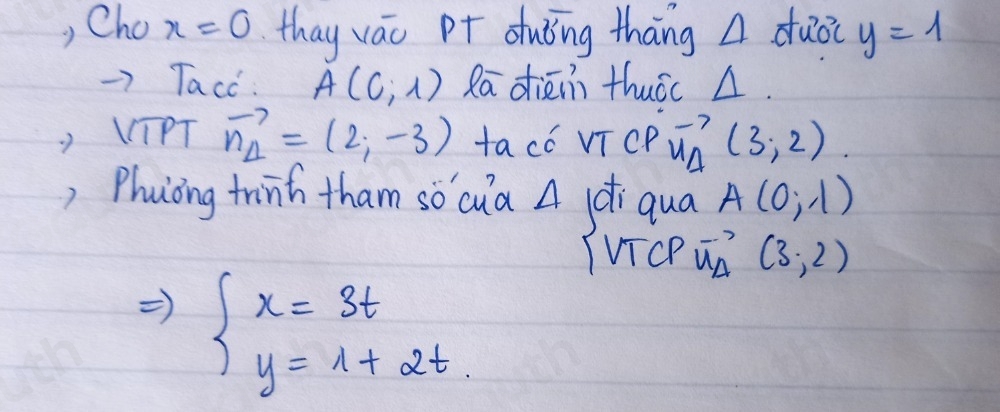 , Cho x = 0. thay vào PT đường thẳng Δ được y = 1
→ Ta có: A(0; 1) là điểm thuộc Δ.
, VTPT n⃗_Δ = (2; -3) ta có VTCP u⃗_Δ (3; 2).
, Phương trình tham số của Δ { đi qua A (0; 1)
VTCP u⃗_Δ (3; 2)
=> { x = 3t
y = 1 + 2t.